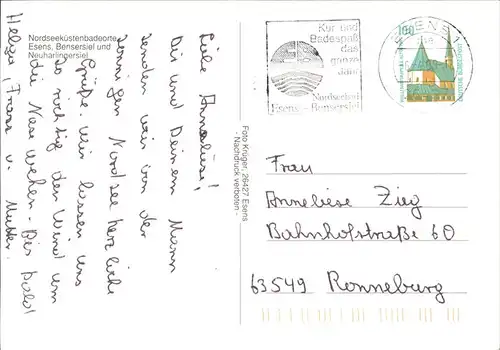 Nordseeküstenbadeorte
Esens, Bensersiel und
Neuharlingersiel
Liebe Anneliese!
Dir und Deinem Mann
senden wir von der
sonnigen Nordsee herzliche
Grüße. Wir lassen uns
so richtig den Wind um
die Nase wehen. Bis bald
Helga, Franz u. Mutter.
Foto Krüger, 26427 Esens
- Nachdruck verboten -
Kur und
Badespaß
das
ganze
Jahr
Nordseebad
Esens - Bensersiel
ESENS 1
100
Frau
Anneliese Zieg
Bahnhofstraße 60
63549 Ronneburg